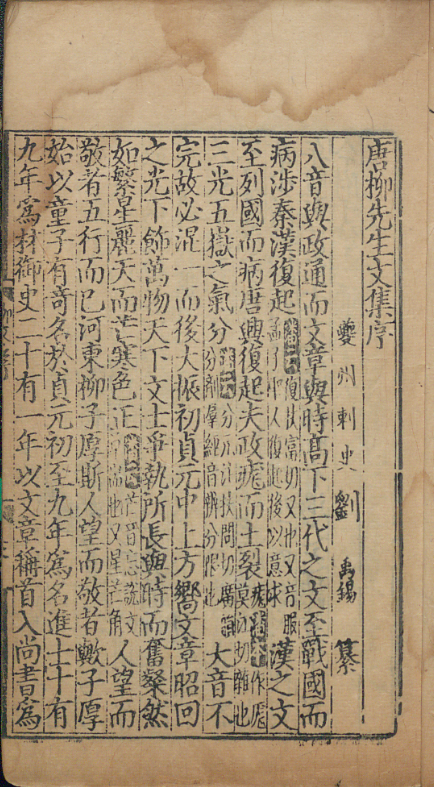 唐柳先生文集序
夔州刺史劉禹錫纂
八音與政通而文章與時髙下三代之文至戰國而
病涉秦漢復起復扶富切又也又音服漢之文
至列國而病唐興復起夫政痝而土裂作厖莫江切雜也
三光五嶽之氣分大音不
完故必混一而後大振初貞元中上方嚮文章昭回
之光下飾萬物天下文士爭執所長與時而奮粲然
如繁星麗天而芒寒色正人望而
敬者五行而已河東柳子厚斯人望而敬者歟子厚
始以童子有奇名於貞元初至九年爲名進士十有
九年爲材御史二十有一年以文章稱首入尚書爲